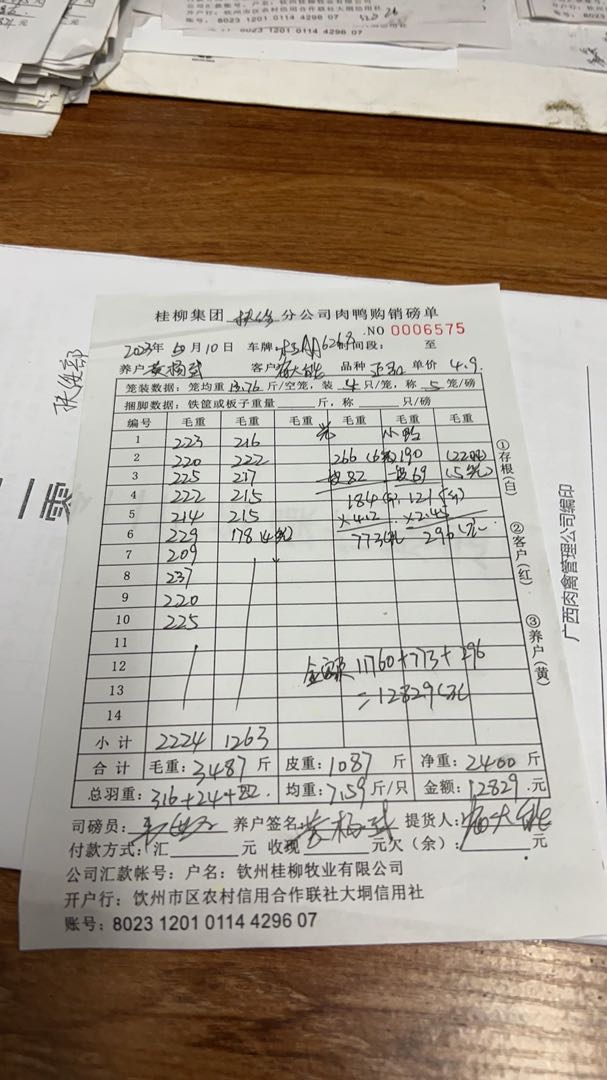 户名：钦州桂柳牧业有限公司
开户行：钦州市区农村信用合作联社大垌信用社
账号：8023 1201 0114 4296 07
8023 1201 0114 4296 07
扶绥部
零一二
广西肉禽管理公司编印
桂柳集团 扶绥 分公司肉鸭购销磅单
.NO 0006575
2023年 10月10日 车牌: 时间段: 至
养户 客户 品种 正品 单价 4.9
笼装数据: 笼均重 13.76 斤/空笼, 装 4 只/笼, 称 5 笼/磅
捆脚数据: 铁筐或板子重量 斤, 称 只/磅
编号 毛重 毛重 毛重 毛重 毛重 毛重
1 223 216 小鸭
2 220 222 266 190 (22只)
3 225 217 皮82 皮69 (5笼)
4 222 215 184 121
5 214 215 ×4.2 ×2.45
6 229 178 (4笼) 773元 296元
7 209
8 237
9 220
10 225
11
12 金额 11760+773+296
13 =12829元
14
小计 2224 1263
合计 毛重: 3487 斤 皮重: 1087 斤 净重: 2400 斤
总羽重: 316+24+22 均重: 7.59 斤/只 金额: 12829 元
司磅员: 养户签名: 提货人:
付款方式: 汇 元 收现 元欠（余）: 元
公司汇款帐号: 户名: 钦州桂柳牧业有限公司
开户行: 钦州市区农村信用合作联社大垌信用社
账号: 8023 1201 0114 4296 07
①存根(白)
②客户(红)
③养户(黄)